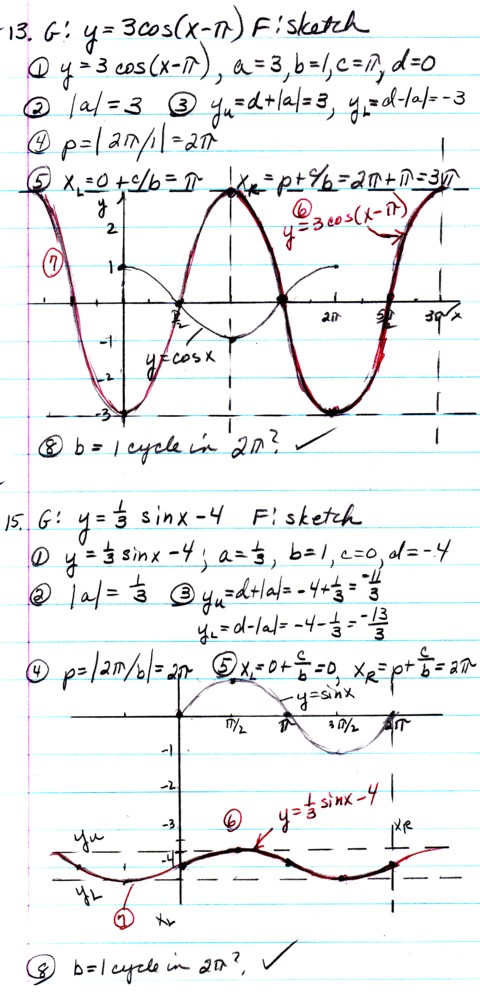 13. G: y = 3cos(x-π) F: sketch
① y = 3 cos(x-π), a=3, b=1, c=π, d=0
② |a| = 3 ③ yu=d+|a|=3, yL=d-|a|=-3
④ p=|2π/1|=2π
⑤ xL=0+c/b=π xR=p+c/b=2π+π=3π
y
⑥
y=3cos(x-π)
2
⑦
1
π/2 2π 5π/2 3π x
-1
y=cosx
-2
-3
⑧ b = 1 cycle in 2π? ✓
15. G: y = 1/3 sinx-4 F: sketch
① y = 1/3 sinx-4; a=1/3, b=1, c=0, d=-4
② |a| = 1/3 ③ yu=d+|a|=-4+1/3=-11/3
yL=d-|a|=-4-1/3=-13/3
④ p=|2π/b|=2π ⑤ xL=0+c/b=0, xR=p+c/b=2π
y=sinx
π/2 π 3π/2 2π
-1
-2
-3
⑥ y=1/3 sinx-4
yu xR
-4
yL
⑦ xL
⑧ b=1 cycle in 2π? ✓